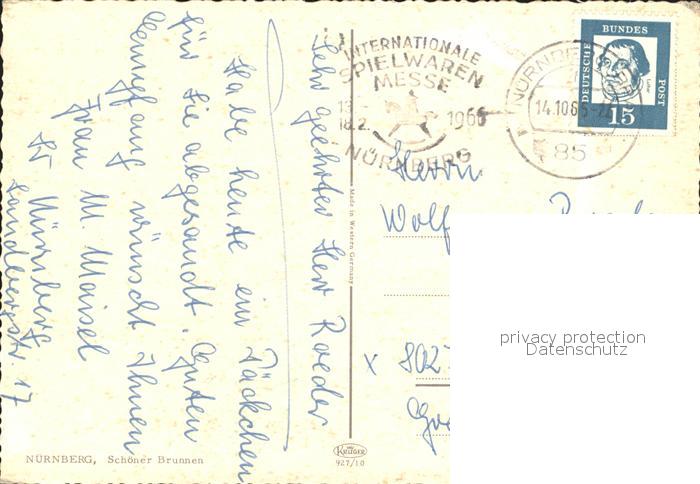 Sehr geehrter Herr Roeder
Habe heute ein Päckchen
für Sie abgesandt. Guten
Empfang wünscht Ihnen
Frau M. Maisel
Nürnberg
Landbergstr 17
INTERNATIONALE
SPIELWAREN
MESSE
13.-
18.2. 1966
NÜRNBERG
NÜRNBERG
14.10.65
85
DEUTSCHE
BUNDES
POST
Luther
15
Herrn
Wolf
x 802
Made in Western Germany
KRÜGER
927/10
NÜRNBERG, Schöner Brunnen
privacy protection
Datenschutz